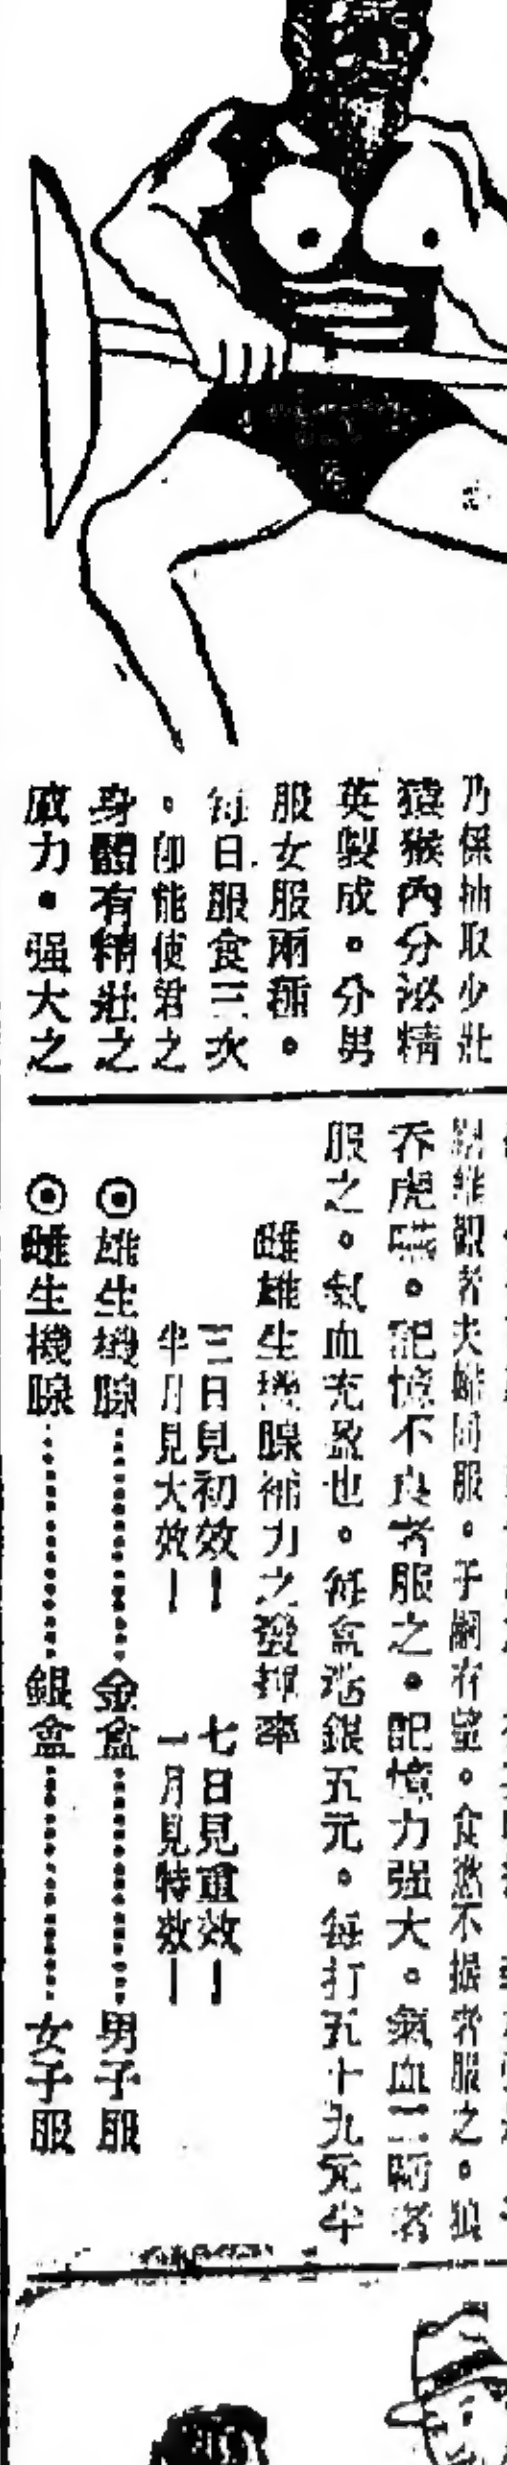 乃係抽取少壯
猿猴內分泌精
英製成。分男
服女服兩種。
每日服食三次
。卽能使君之
身體有精壯之
威力。强大之
艱維觀者夫婦同服。子嗣有望。食慾不振者服之。狼
吞虎嚥。記憶不良者服之。記憶力强大。氣血兩虧者
服之。氣血充盈也。每盒港銀五元。每打五十九元半
雌雄生機腺補力之發揮率
三日見初效！ 七日見重效！
半月見大效！ 一月見特效！
◉雄生機腺…………金盒…………男子服
◉雌生機腺…………銀盒…………女子服